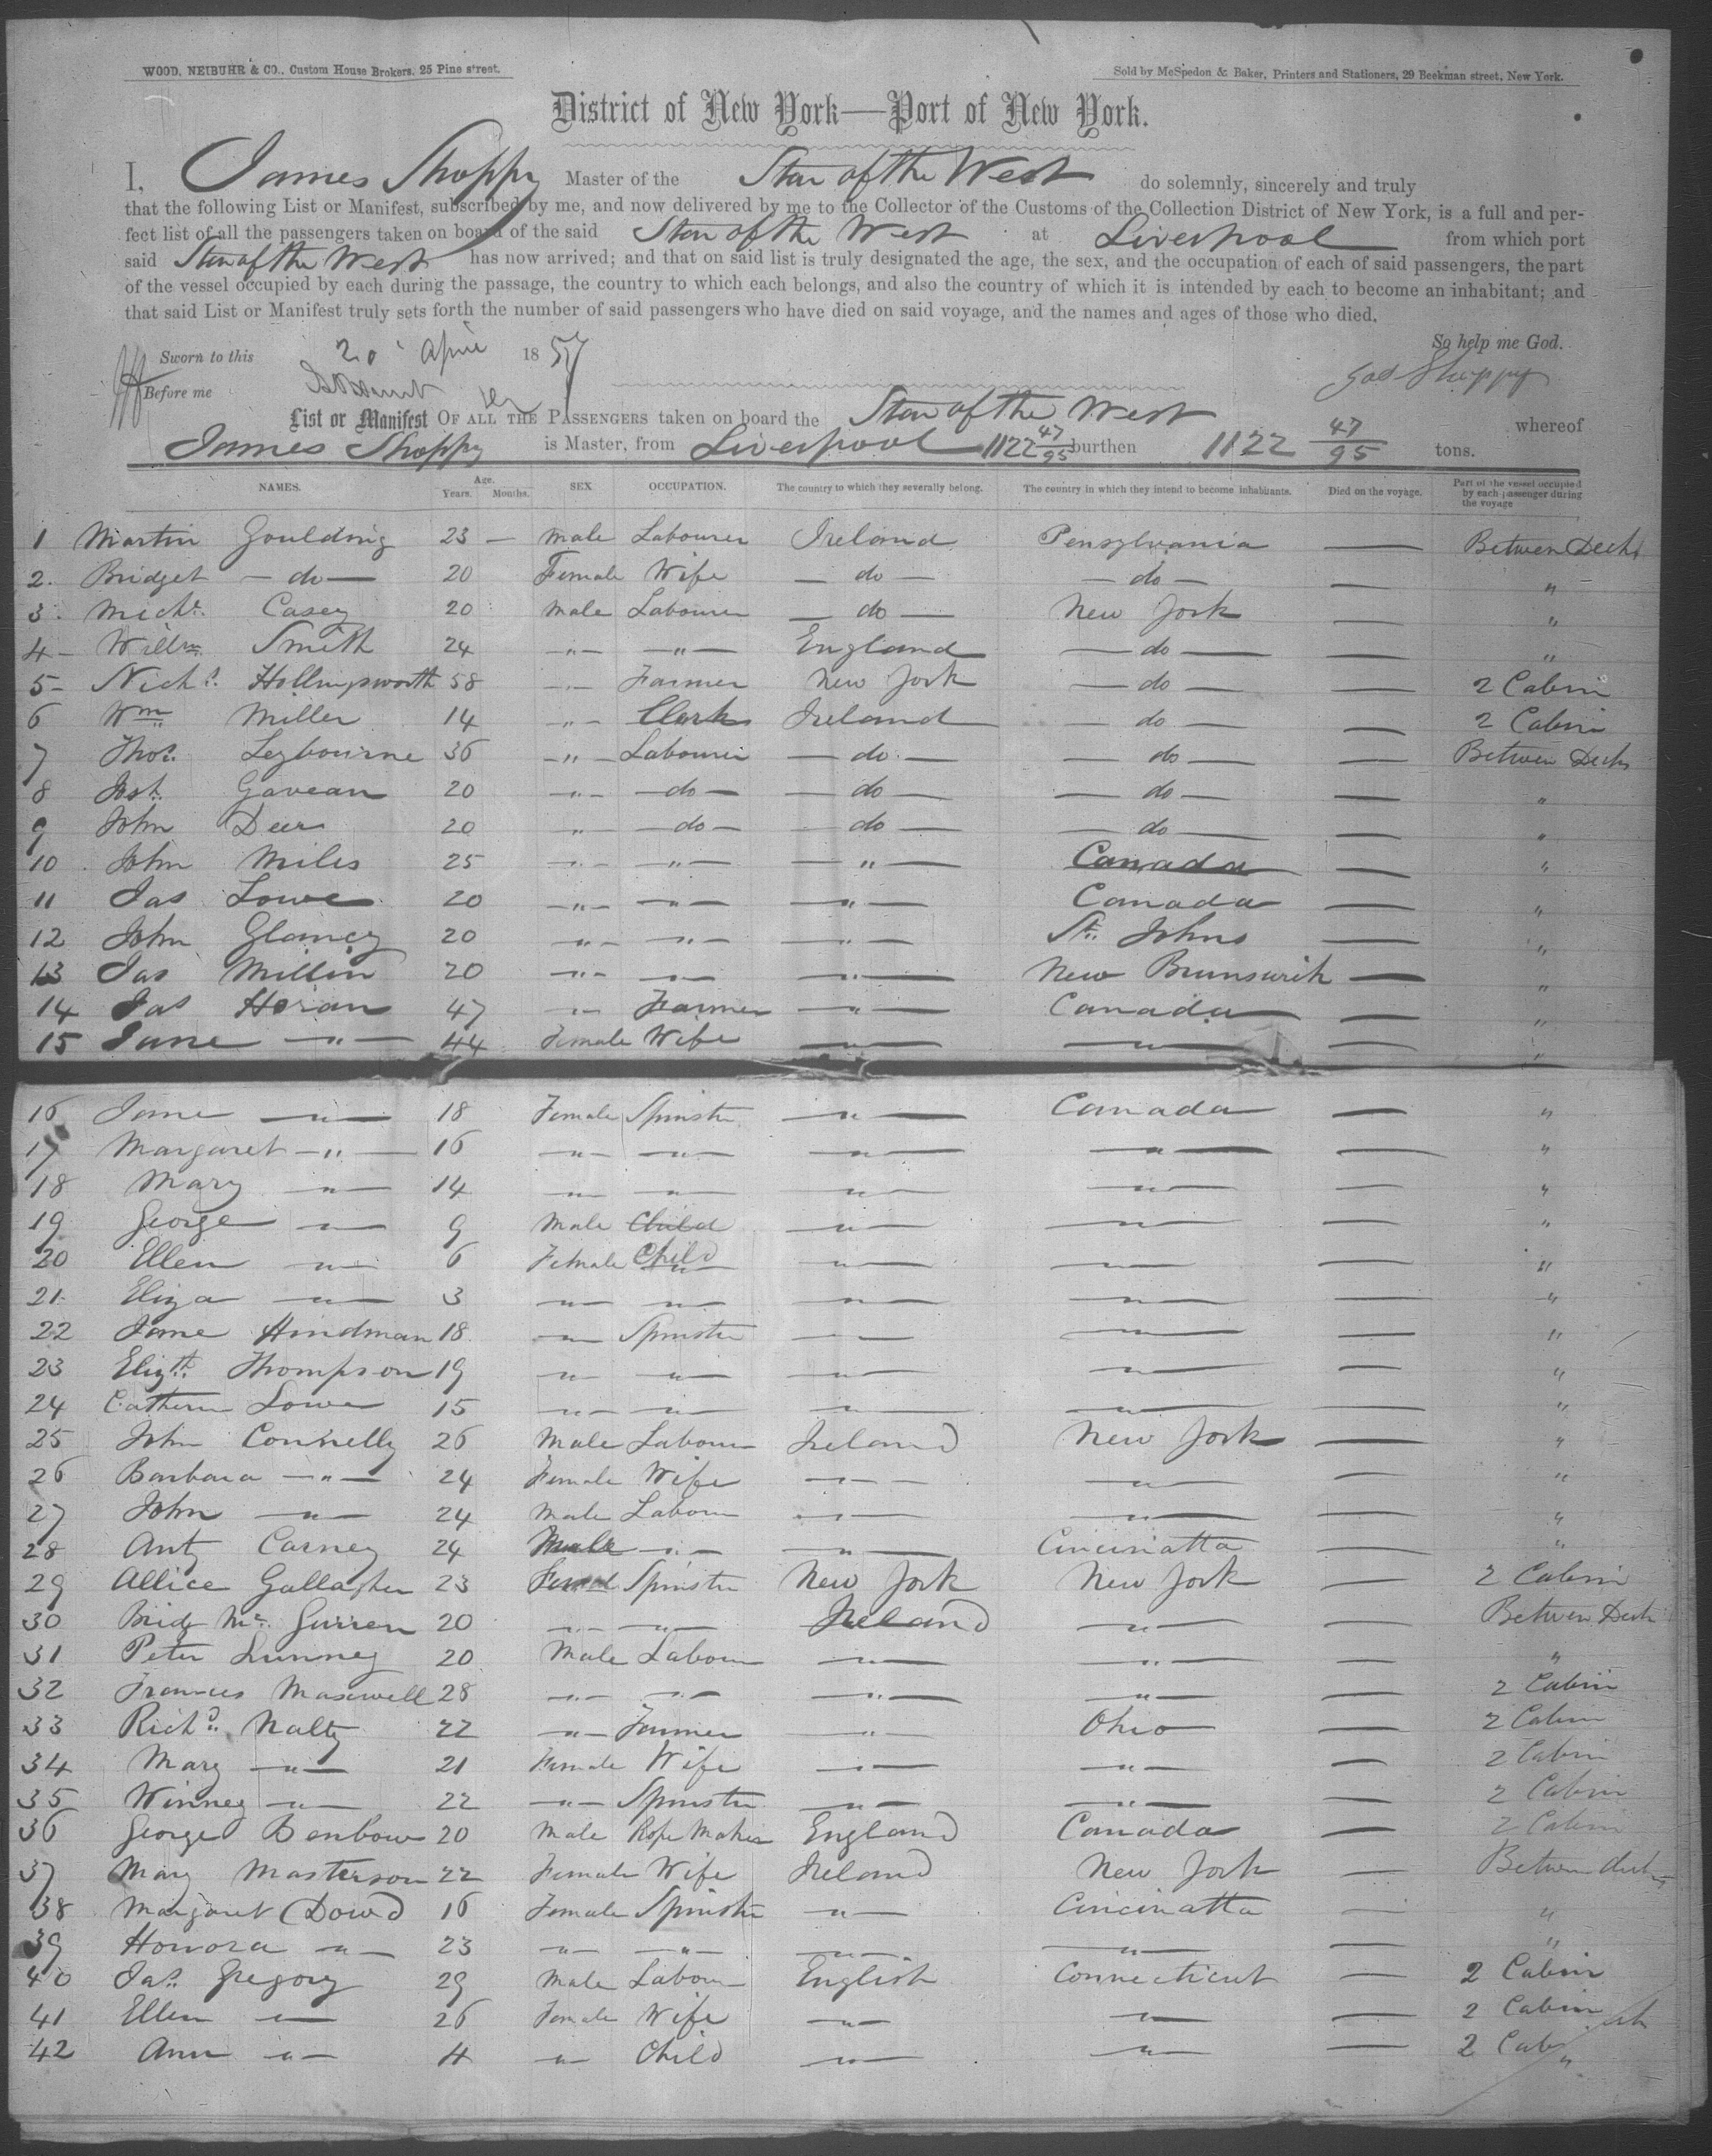 WOOD, NEIBUHR & CO., Custom House Brokers. 25 Pine street.
Sold by McSpedon & Baker, Printers and Stationers, 29 Beekman street, New York.
District of New York—Port of New York.
I, James Shoppy Master of the Star of the West do solemnly, sincerely and truly
that the following List or Manifest, subscribed by me, and now delivered by me to the Collector of the Customs of the Collection District of New York, is a full and per-
fect list of all the passengers taken on board of the said Star of the West at Liverpool from which port
said Star of the West has now arrived; and that on said list is truly designated the age, the sex, and the occupation of each of said passengers, the part
of the vessel occupied by each during the passage, the country to which each belongs, and also the country of which it is intended by each to become an inhabitant; and
that said List or Manifest truly sets forth the number of said passengers who have died on said voyage, and the names and ages of those who died.
So help me God.
Sworn to this 20 April 1857
Jas Shoppy
Before me
List or Manifest OF ALL THE PASSENGERS taken on board the Star of the West whereof
James Shoppy is Master, from Liverpool 1122 47/95 burthen 1122 47/95 tons.
NAMES. Age. Years. Months. SEX OCCUPATION. The country to which they severally belong. The country in which they intend to become inhabitants. Died on the voyage. Part of the vessel occupied by each passenger during the voyage
1 Martin Goulding 23 — Male Labourer Ireland Pensylvania — Betwen Decks
2. Bridget — do — 20 Female Wife — do — — do — — "
3. Michl. Casey 20 Male Labourer — do — New York — "
4 — Willm Smith 24 — " — — " — England — do — — "
5 — Nichs. Hollingsworth 58 — " — Farmer New York — do — — 2 Cabin
6 Wm Miller 14 — " — Clerk Ireland — do — — 2 Cabin
7 Thos. Leybourne 36 — " — Labourer — do — — do — — Betwen Decks
8 Josh. Gavean 20 — " — — do — — do — — do — — "
9 John Deer 20 — " — — do — — do — — do — — "
10 John Miles 25 — " — — " — — " — Canada — "
11 Jas Lowe 20 — " — — " — — " — Canada — "
12 John Glancey 20 — " — — " — — " — St. Johns — "
13 Jas Millin 20 — " — — " — — " — New Brunswick — "
14 Jas Horan 47 — " — Farmer — " — Canada — "
15 Jane — " — 44 Female Wife — " — — " — — "
16 Jane — " — 18 Female Spinster — " — Canada — "
17 Margaret — " — 16 — " — — " — — " — — " — — "
18 Mary — " — 14 — " — — " — — " — — " — — "
19 George — " — 9 Male Child — " — — " — — "
20 Ellen — " — 6 Female Child — " — — " — — "
21 Eliza — " — 3 — " — — " — — " — — " — — "
22 Jane Hindman 18 — " — Spinster — " — — " — — "
23 Elizth. Thompson 19 — " — — " — — " — — " — — "
24 Cathern Lowe 15 — " — — " — — " — — " — — "
25 John Connelly 26 Male Labour Ireland New York — "
26 Barbara — " — 24 Female Wife — " — — " — — "
27 John — " — 24 Male Labour — " — — " — — "
28 Anty Carney 24 Male — " — — " — Cincinatta — "
29 Allice Gallagher 23 Femal Spinster New York New York — 2 Cabin
30 Bridg Mc. Gurren 20 — " — — " — Ireland — " — — Betwen Deck
31 Peter Lunney 20 Male Labour — " — — " — — "
32 Frances Maxwell 28 — " — — " — — " — — " — — 2 Cabin
33 Richd. Nalty 22 — " — Farmer — " — Ohio — 2 Cabin
34 Mary — " — 21 Female Wife — " — — " — — 2 Cabin
35 Winney — " — 22 — " — Spinster — " — — " — — 2 Cabin
36 George Benbow 20 Male Rope Maker England Canada — 2 Cabin
37 Mary Masterson 22 Female Wife Ireland New York — Betwen decks
38 Margaret Dowd 16 Female Spinster — " — Cincinatta — "
39 Honora — " — 23 — " — — " — — " — — " — — "
40 Jas. Gregory 29 Male Labour English Connecticut — 2 Cabin
41 Ellen — " — 26 Female Wife — " — — " — — 2 Cabin
42 Ann — " — 4 — " — Child — " — — " — — 2 Cab "